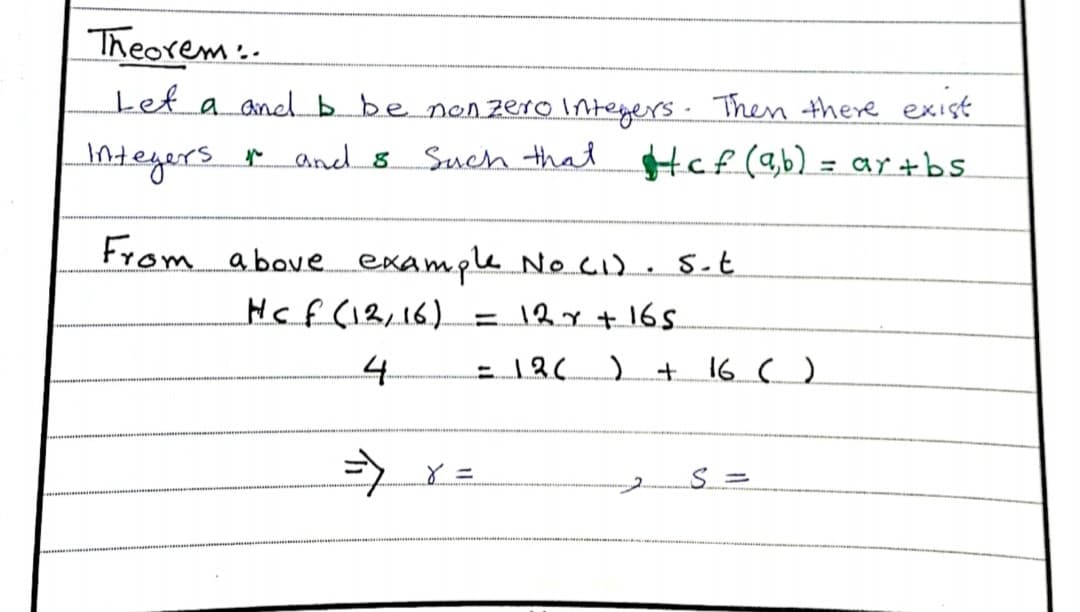 Theorem :-
Let a and b be non zero integers. Then there exist
Integers r and s such that Hcf (a,b) = ar + bs
From above example No (1). s.t
Hcf (12,16) = 12r + 16s
4 = 12( ) + 16 ( )
⇒ r = , s =